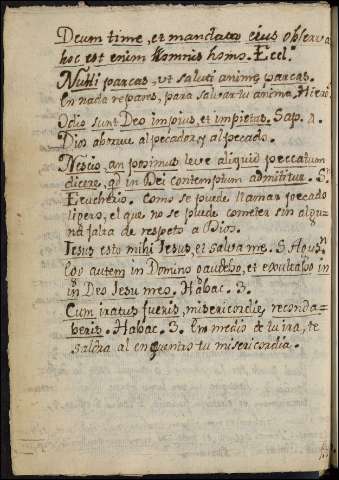 Deum time, et mandata eius observa
hoc est enim omnis homo. Eccl.
Nulli parcas, vt saluti animę parcas.
En nada repares, para salvar tu anima, Hiero
Odio sunt Deo impius, et impietas. Sap.
Dios aborrece al pecador, y al pecado.
Nescio, an possimus leve aliquid peccatum
dicere, qd in Dei contemptum admititur. S.
Eucherio. Como se puede llamar pecado
ligero, el que no se puede cometer sin algu
na falta de respeto a Dios.
Jesus esto mihi Jesus, et salva me. S. Agusn
Ego autem in Domino gaudebo, et exultabo in
in Deo Jesu meo. Habac. 3.
Cum iratus fueris, misericordię recorda-
beris. Habac. 3. En medio de tu ira, te
saldra al enquentro tu misericordia.